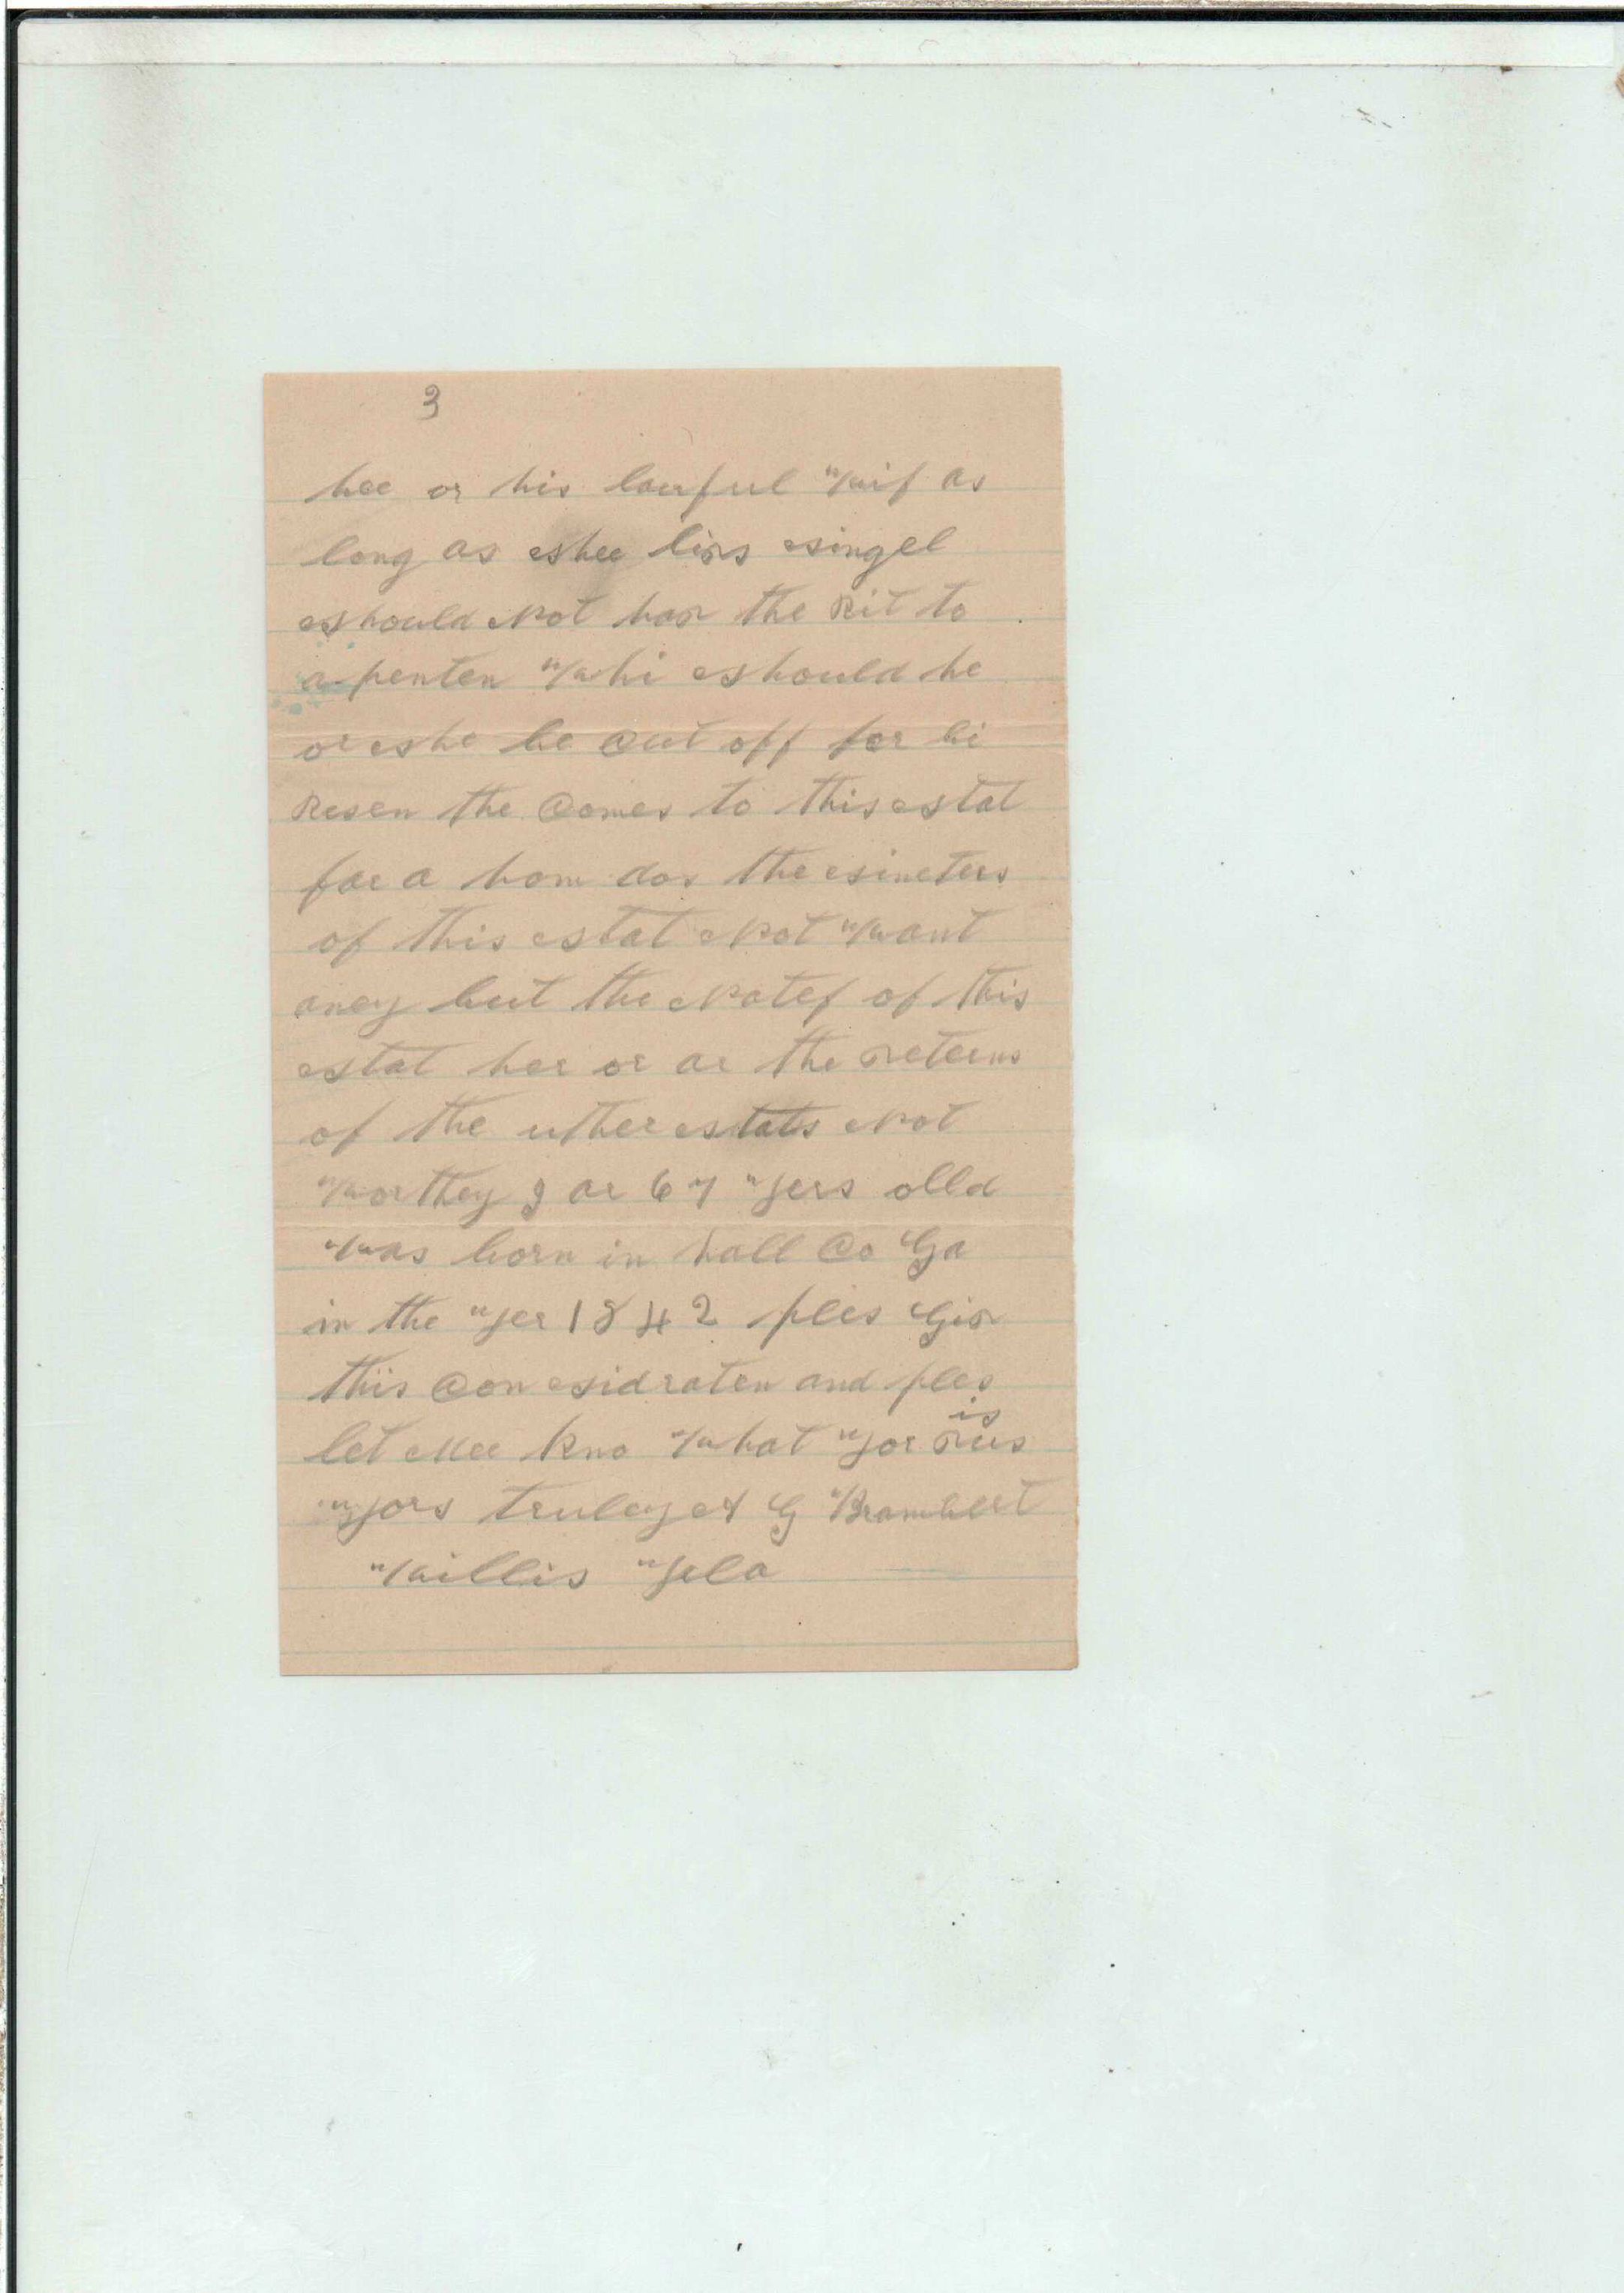 3
hee or his lauful Wif as
long as shee livs singel
should Not hav the Rit to
a penten Whi should he
or she be Cut off for hi
Resen the Comes to this stat
for a hom dos the sineters
of this stat Not Want
aney but the Natef of this
stat her or ar the veterns
of the uther stats Not
Worthey I ar 67 Yers olld
Was born in hall Co Ga
in the Yer 1842 ples Giv
this Con sidraten and ples
let Mee Kno What Yor vus is
Yors truley A G Bramblet
Willis Yela